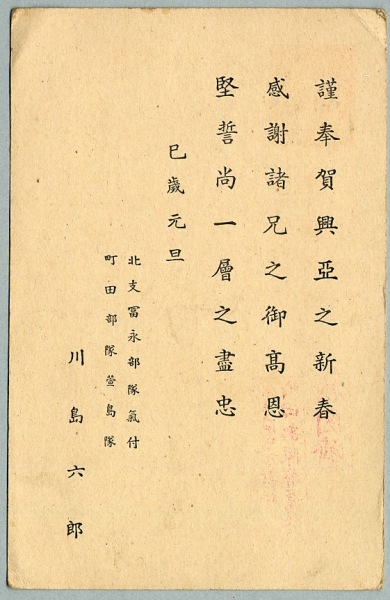 謹奉賀興亞之新春
感謝諸兄之御高恩
堅誓尚一層之盡忠
巳歲元旦
北支冨永部隊氣付
町田部隊萱島隊
川島六郎